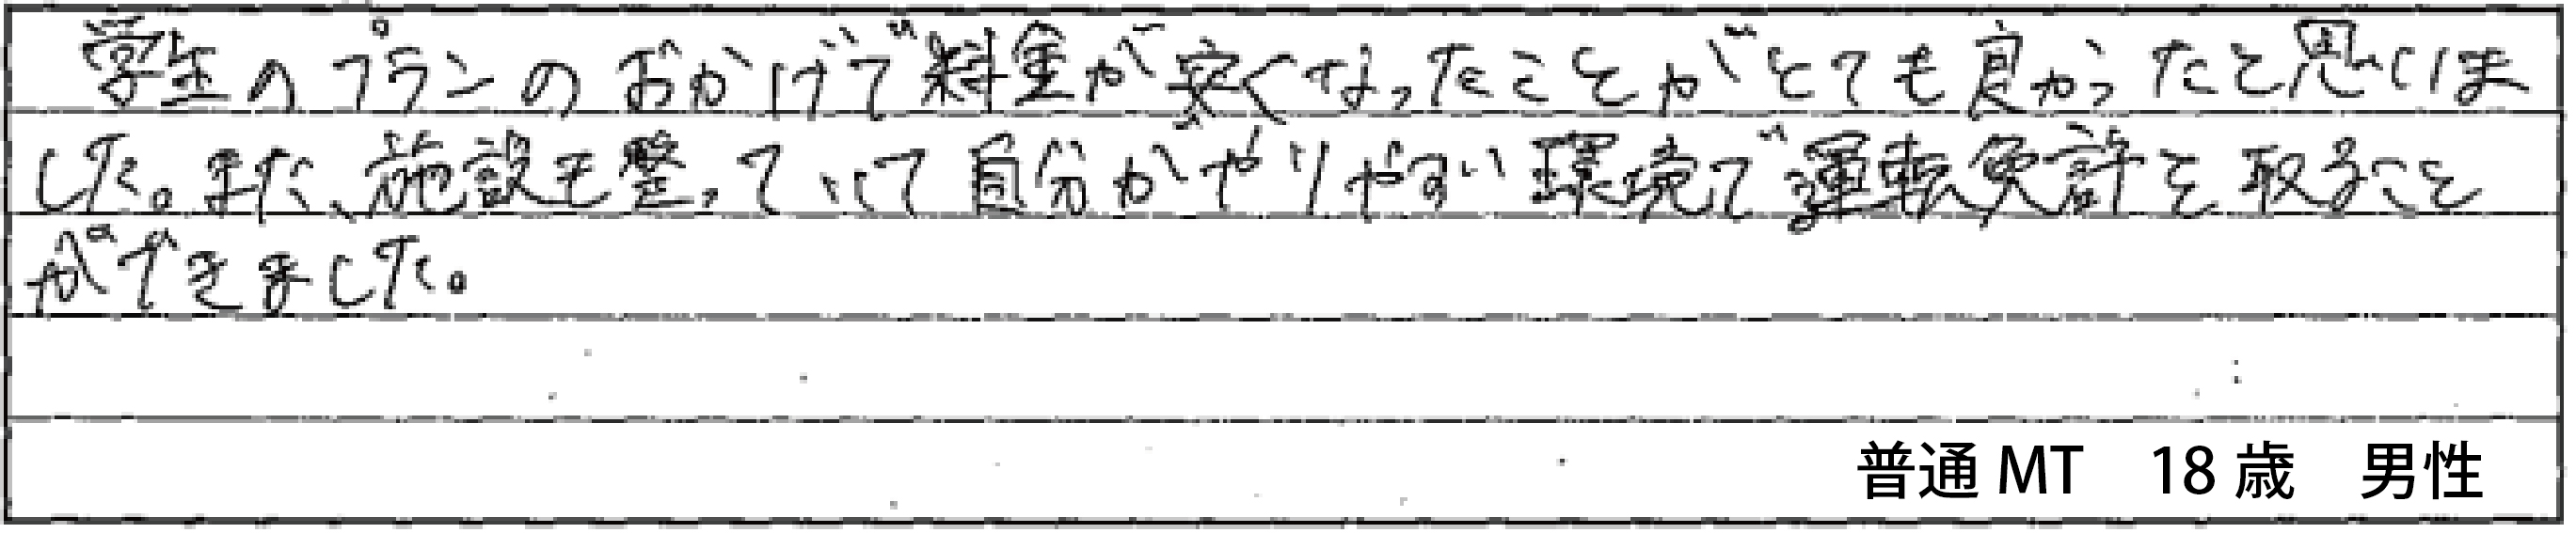 学生のプランのおかげで料金が安くなったことがとても良かったと思いま
した。また、施設も整っていて自分がやりやすい環境で運転免許を取ること
ができました。
普通 MT　18 歳　男性